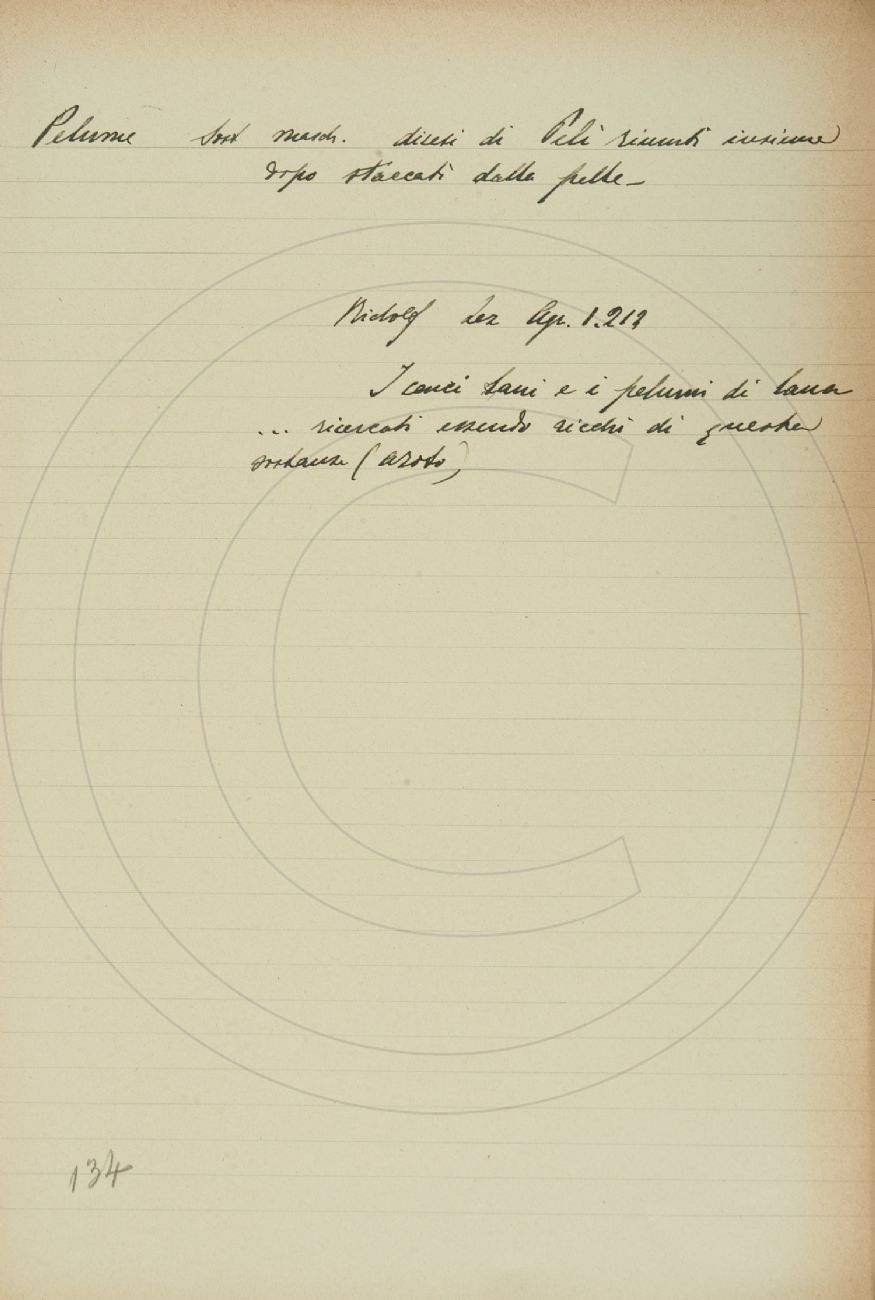 Pelume Sost masch. dicesi di Peli riuniti insieme
dopo staccati dalla pelle –
Ridolf Lez Agr. 1.213
I cenci lani e i pelumi di lana
... ricercati essendo ricchi di questa
sostanza (azoto)
134